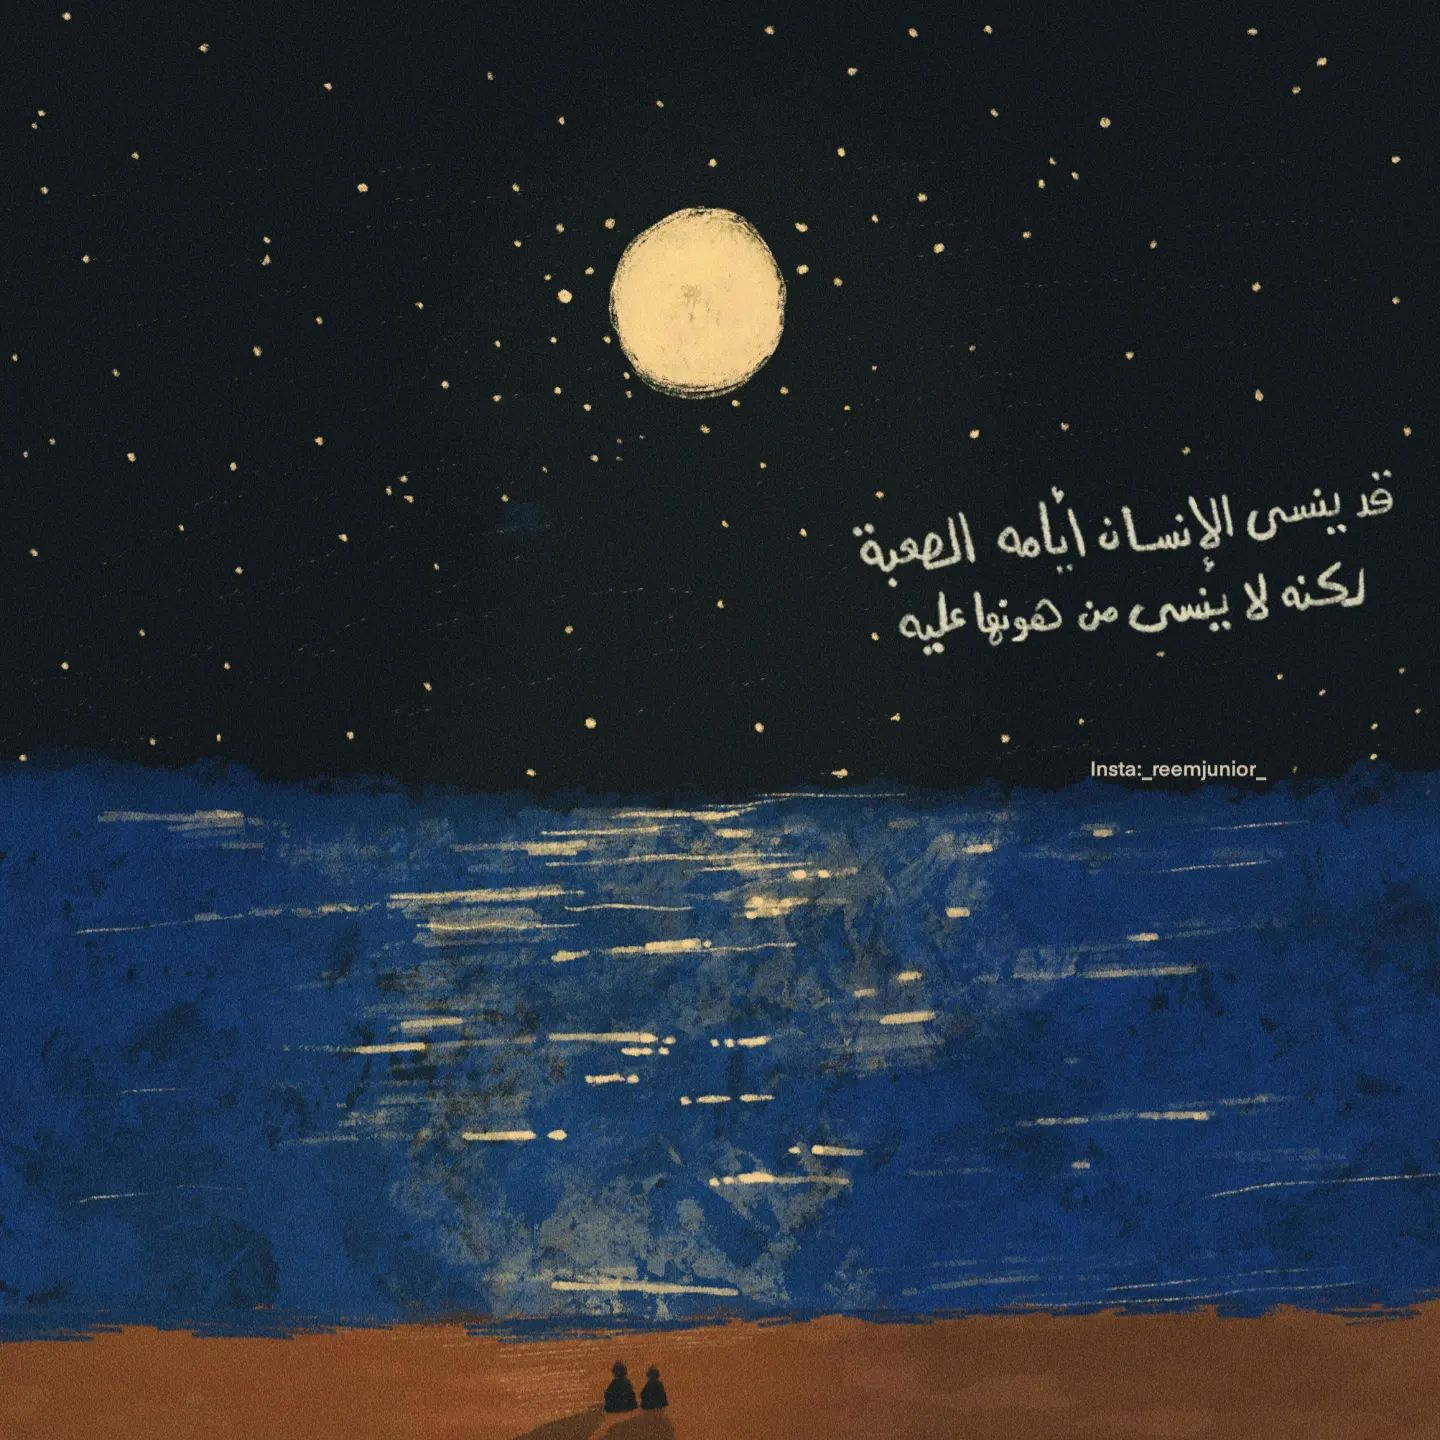 قد ينسى الإنسان أيامه الصعبة
لكنه لا ينسى من هونها عليه
Insta:_reemjunior_